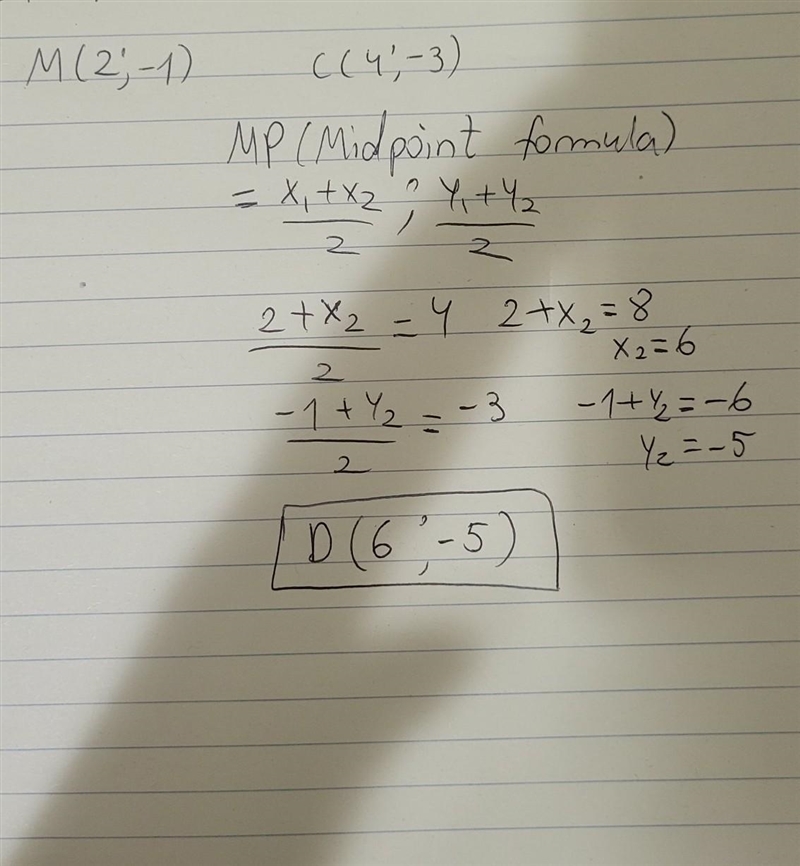 M(2;-1) C(4;-3)
MP(Midpoint formula)
= x₁+x₂/2 ; y₁+y₂/2
2+x₂/2 = 4 2+x₂=8
x₂=6
-1+y₂/2 = -3 -1+y₂=-6
y₂=-5
D(6;-5)